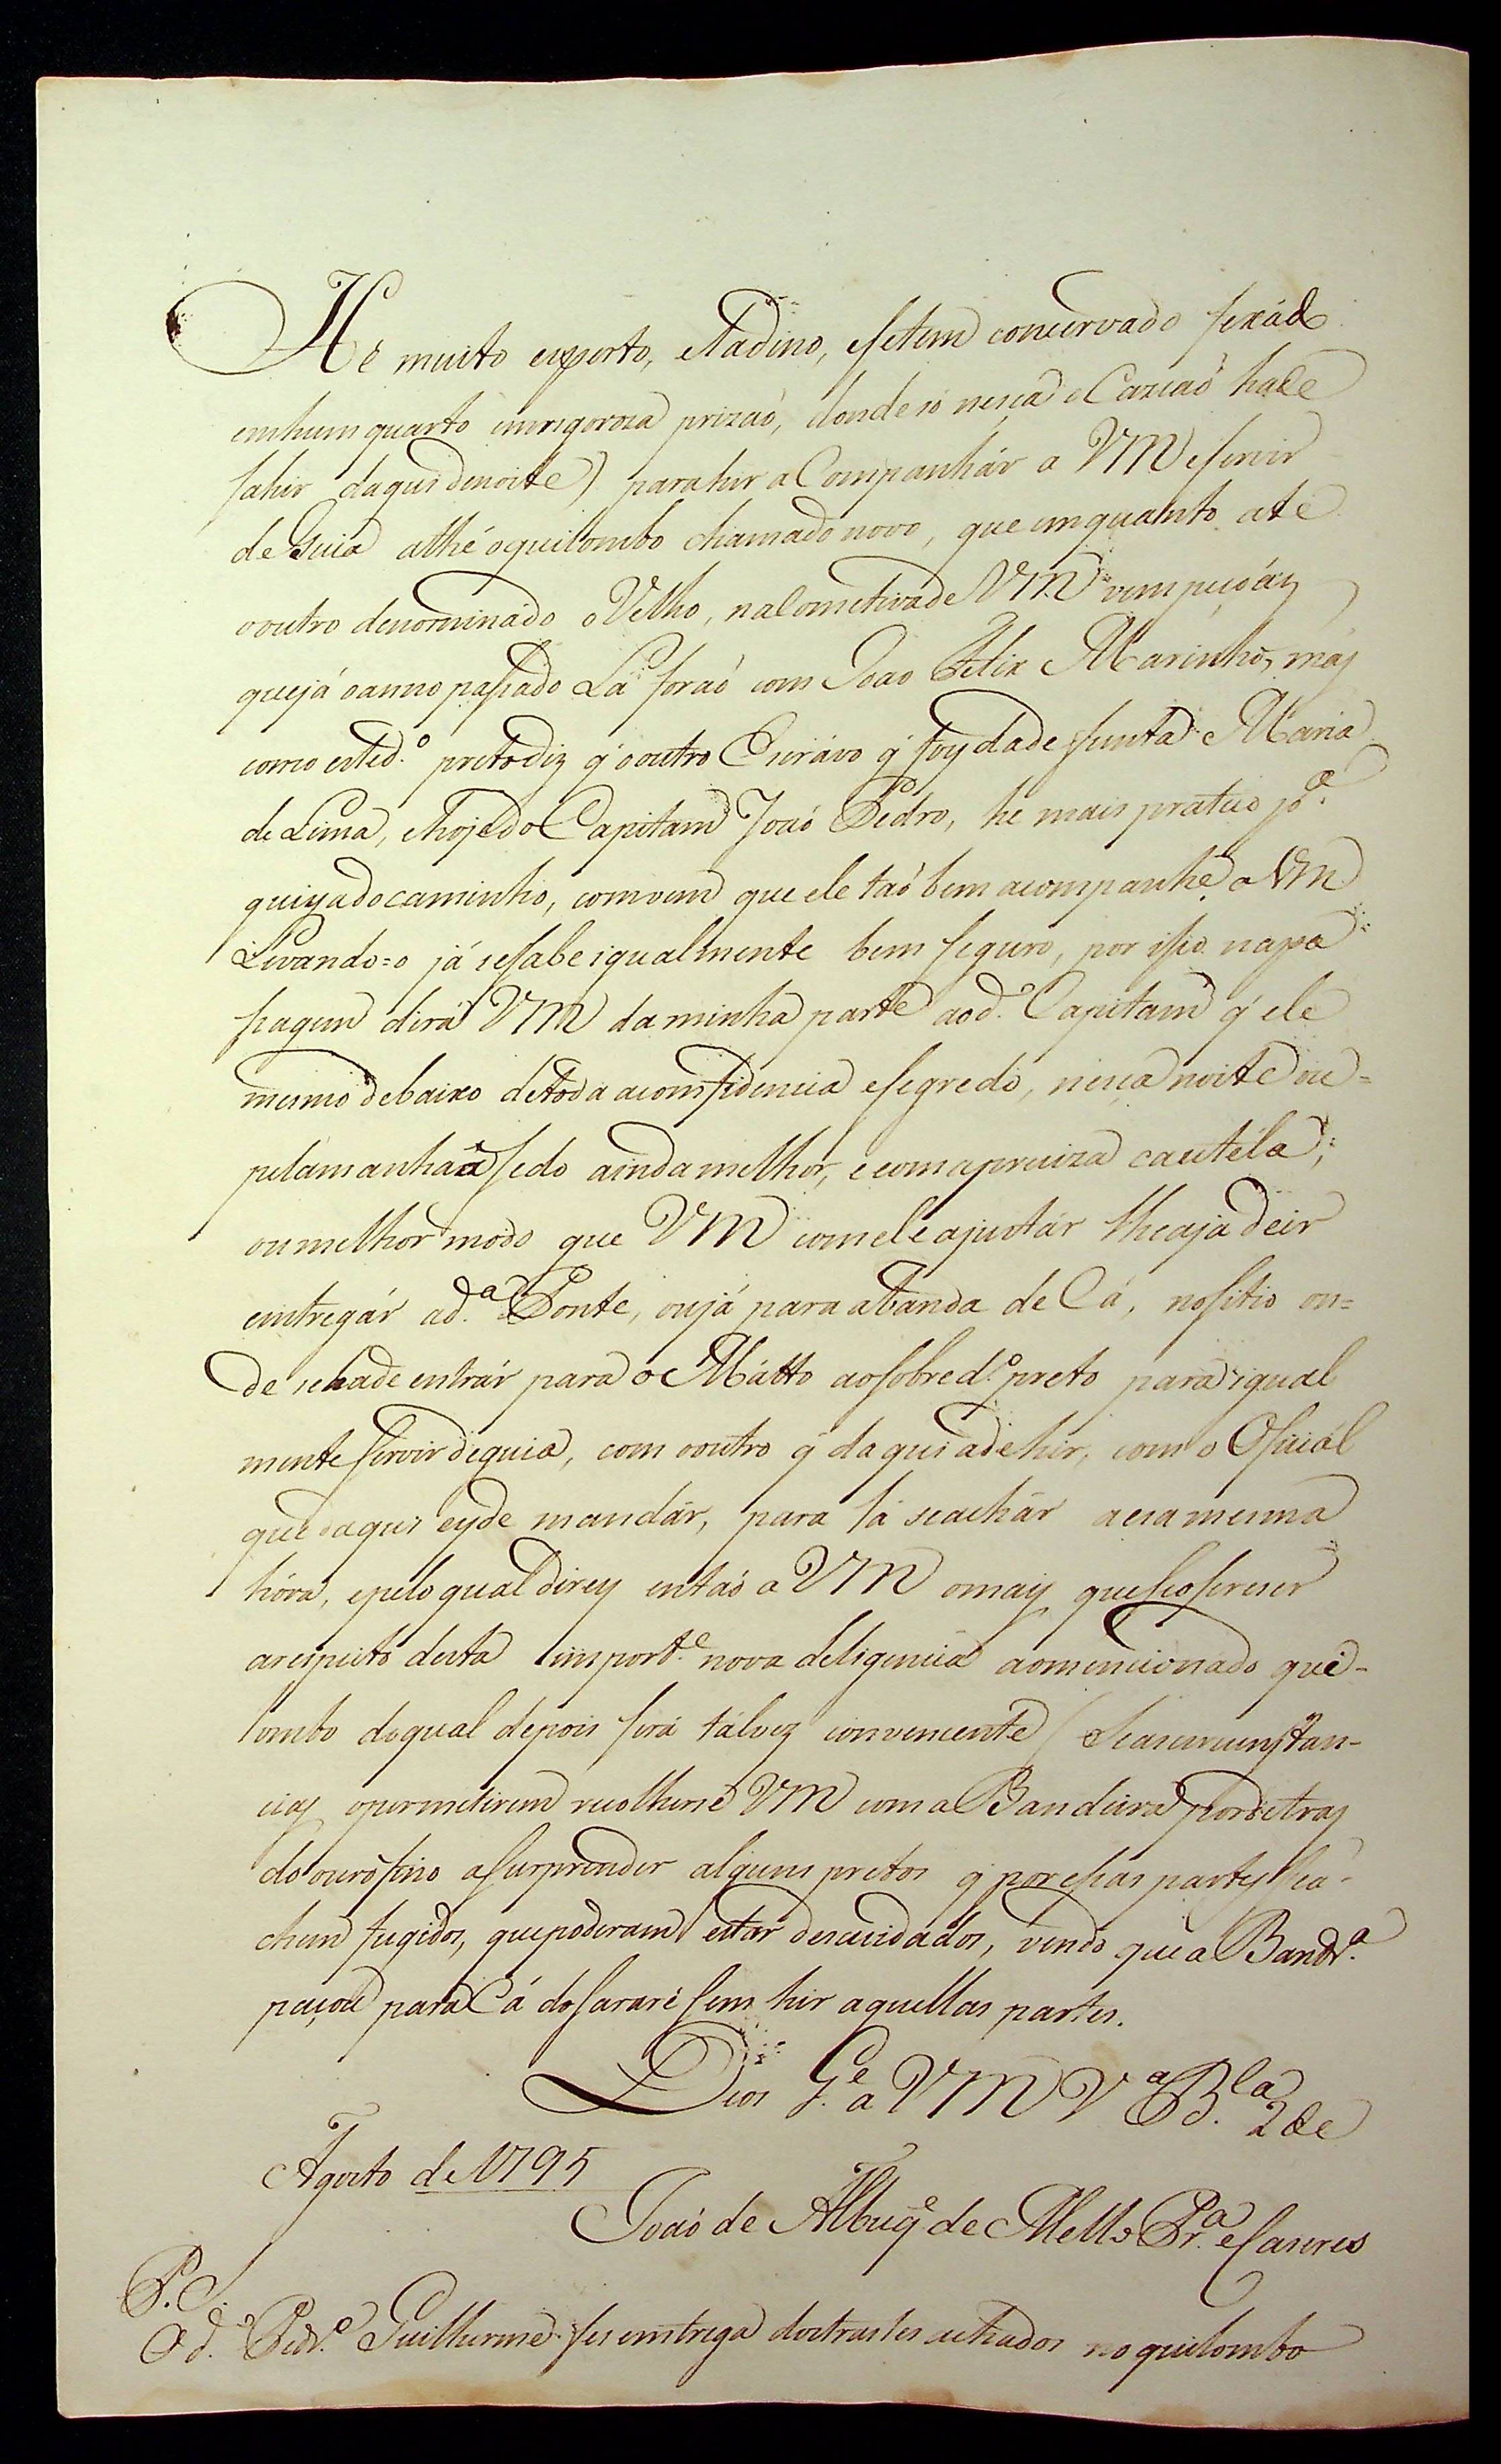 He muito experto, eladino, esetem concervado fexádo
emhum quarto emrigoroza prizaó, donde só nesça ocaziaó hade
sahir daqui denoite) parahir aCompanhár a VM eservir
deGuia athé oquilombo chamado novo, que emquanto até
ooutro denominádo oVelho, naComitivade VM vem peçoáz
quejá oanno passado Lá foraó com Joao Felix Marinho, máz
como ested.º pretodiz q̃ ooutro Escrávo q̃ foy dadefunta Maria
de Lima, ehojedo Capitam Joaó Pedro, he maispratico
docaminho, comvem que ele taó bem acompanhe a VM
Levando=o já sesabe igualmente bem seguro, por isso napa
sagem dirá VM daminha parte aod.º Capitam q̃ ele
mesmo debaixo detoda aconfidencia esegredo, nesça noite ou=
pelamanhaã sedo aindamelhor, ecomapreciza cautéla;
oumelhor modo que VM comele ajustár lheaja deir
emtregár ad.ª Ponte, oujá para abanda de Cá, nositio on=
de sehade entrár para o Mátto aosobred.º preto para igual
mente servir deguia, com ooutro q̃ daqui adehir, com o Oficiál
que daqui eyde mandár, para lá seachár aesamesma
hóra, epelo qual direy entaó a VM omaiz queseoferecer
arespeito desta import.e nova deligencia aomencionado qui-
lombo doqual depois será tálvez conveniente (Seascircunstan-
ciaz opermitirem recolherse VM com a Bandeira pordetraz
do ourofino asurprender alguns pretos q̃ poressas partes sea-
chem fugidos, quepoderam estar descuidados, vendo que a Bandr.ª
paçou para Cá do sararé sem hir aquellas partes.
Deos G.e a VM V.ª B.la 2 de
Agosto de 1795
Joaó de Albuq.e de Mello Pr.ª eCaceres
P.S.
O d.º Pedr.º Guilherme fes emtrega dostrastes achados noquilombo